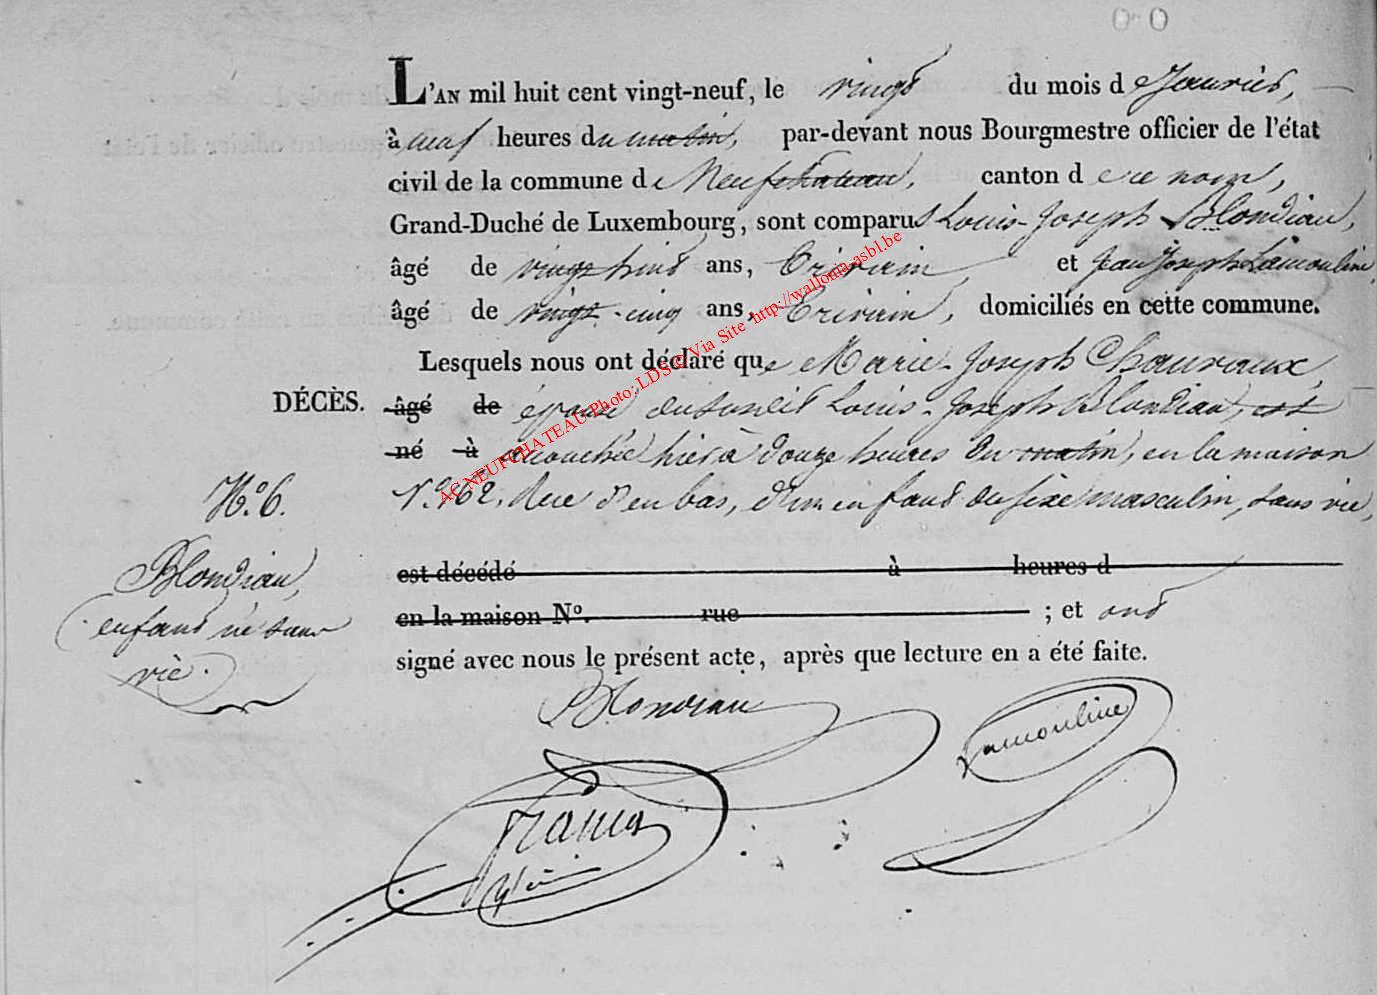 L'AN mil huit cent vingt-neuf, le vingt du mois de Janvier,
à neuf heures du matin, par-devant nous Bourgmestre officier de l'état
civil de la commune de Neufchateau, canton de ce nom,
Grand-Duché de Luxembourg, sont comparus Louis-Joseph Blondiau,
âgé de vingt huit ans, Ecrivain et Jean Joseph Lamouline,
âgé de vingt-cinq ans, Ecrivain, domiciliés en cette commune.
Lesquels nous ont déclaré que Marie-Joseph Chauvaux,
DÉCÈS. âgé de épouse du susdit Louis-Joseph Blondiau, est
né à accouchée hier à douze heures du matin, en la maison
N.o 6. N.o 62, Rue d'en bas, d'un enfant du sexe masculin, sans vie,
Blondiau,
enfant né sans
vie.
est décédé à heures d
en la maison No. rue ; et ont
signé avec nous le présent acte, après que lecture en a été faite.
Blondiau
Lamouline
ACNEUFCHATEAU Photo: LDS © Via Site http://wallonia-asbl.be